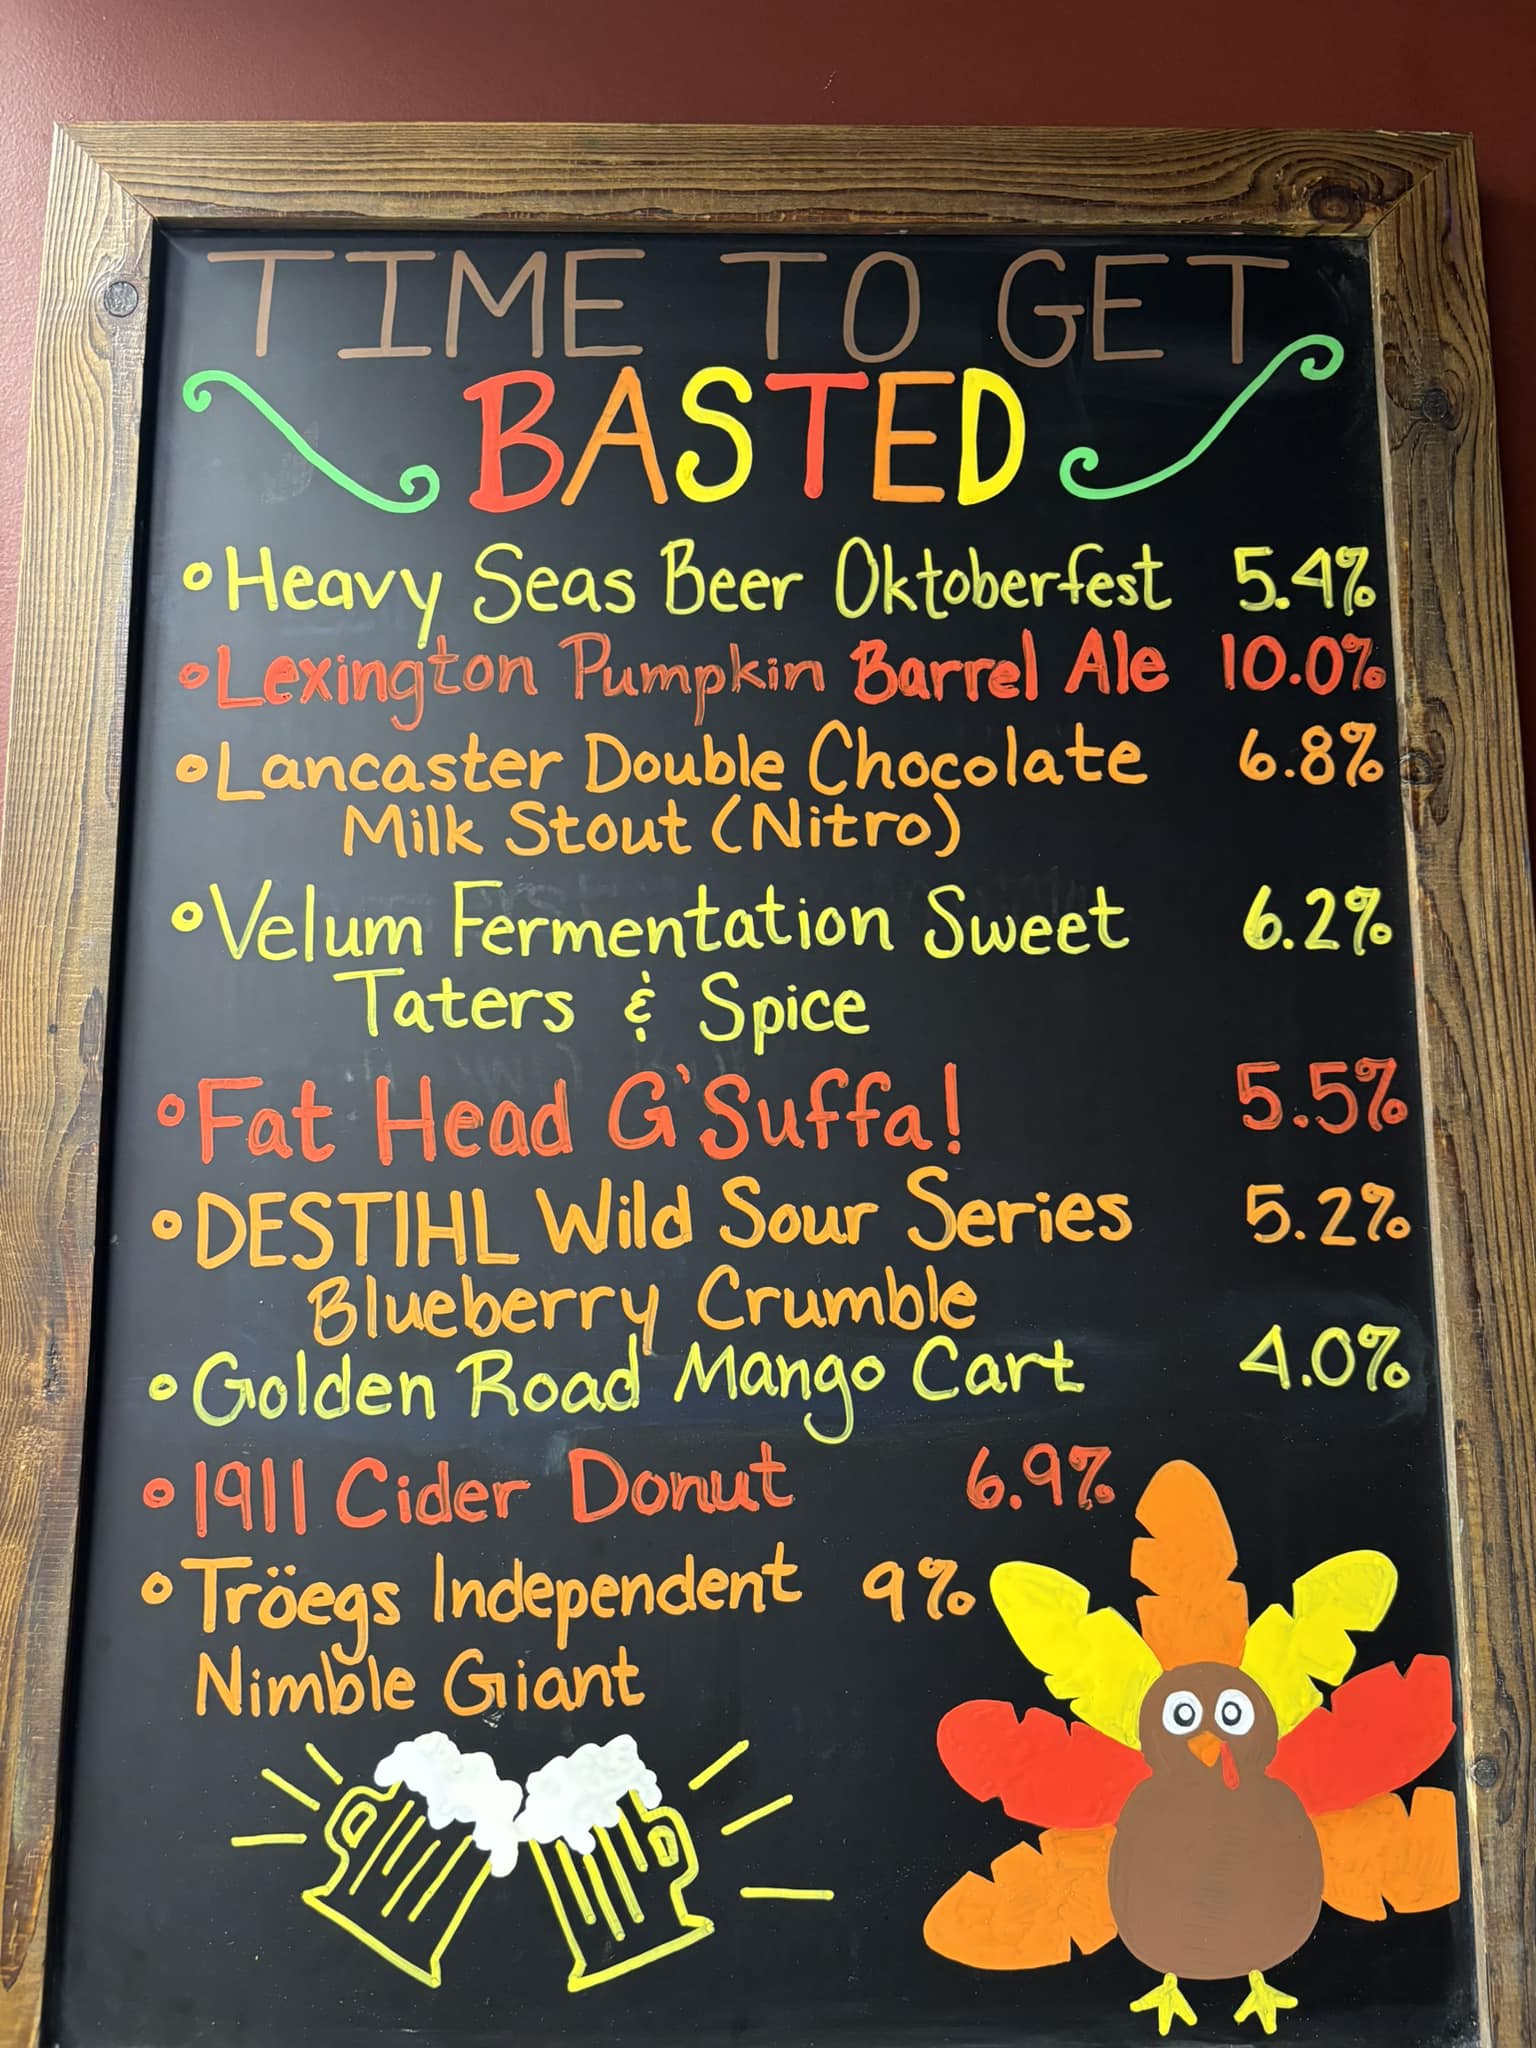 TIME TO GET
BASTED
Heavy Seas Beer Oktoberfest 5.4%
Lexington Pumpkin Barrel Ale 10.0%
Lancaster Double Chocolate 6.8%
Milk Stout (Nitro)
Velum Fermentation Sweet 6.2%
Taters & Spice
Fat Head G'Suffa! 5.5%
DESTIHL Wild Sour Series 5.2%
Blueberry Crumble
Golden Road Mango Cart 4.0%
1911 Cider Donut 6.9%
Tröegs Independent 9%
Nimble Giant